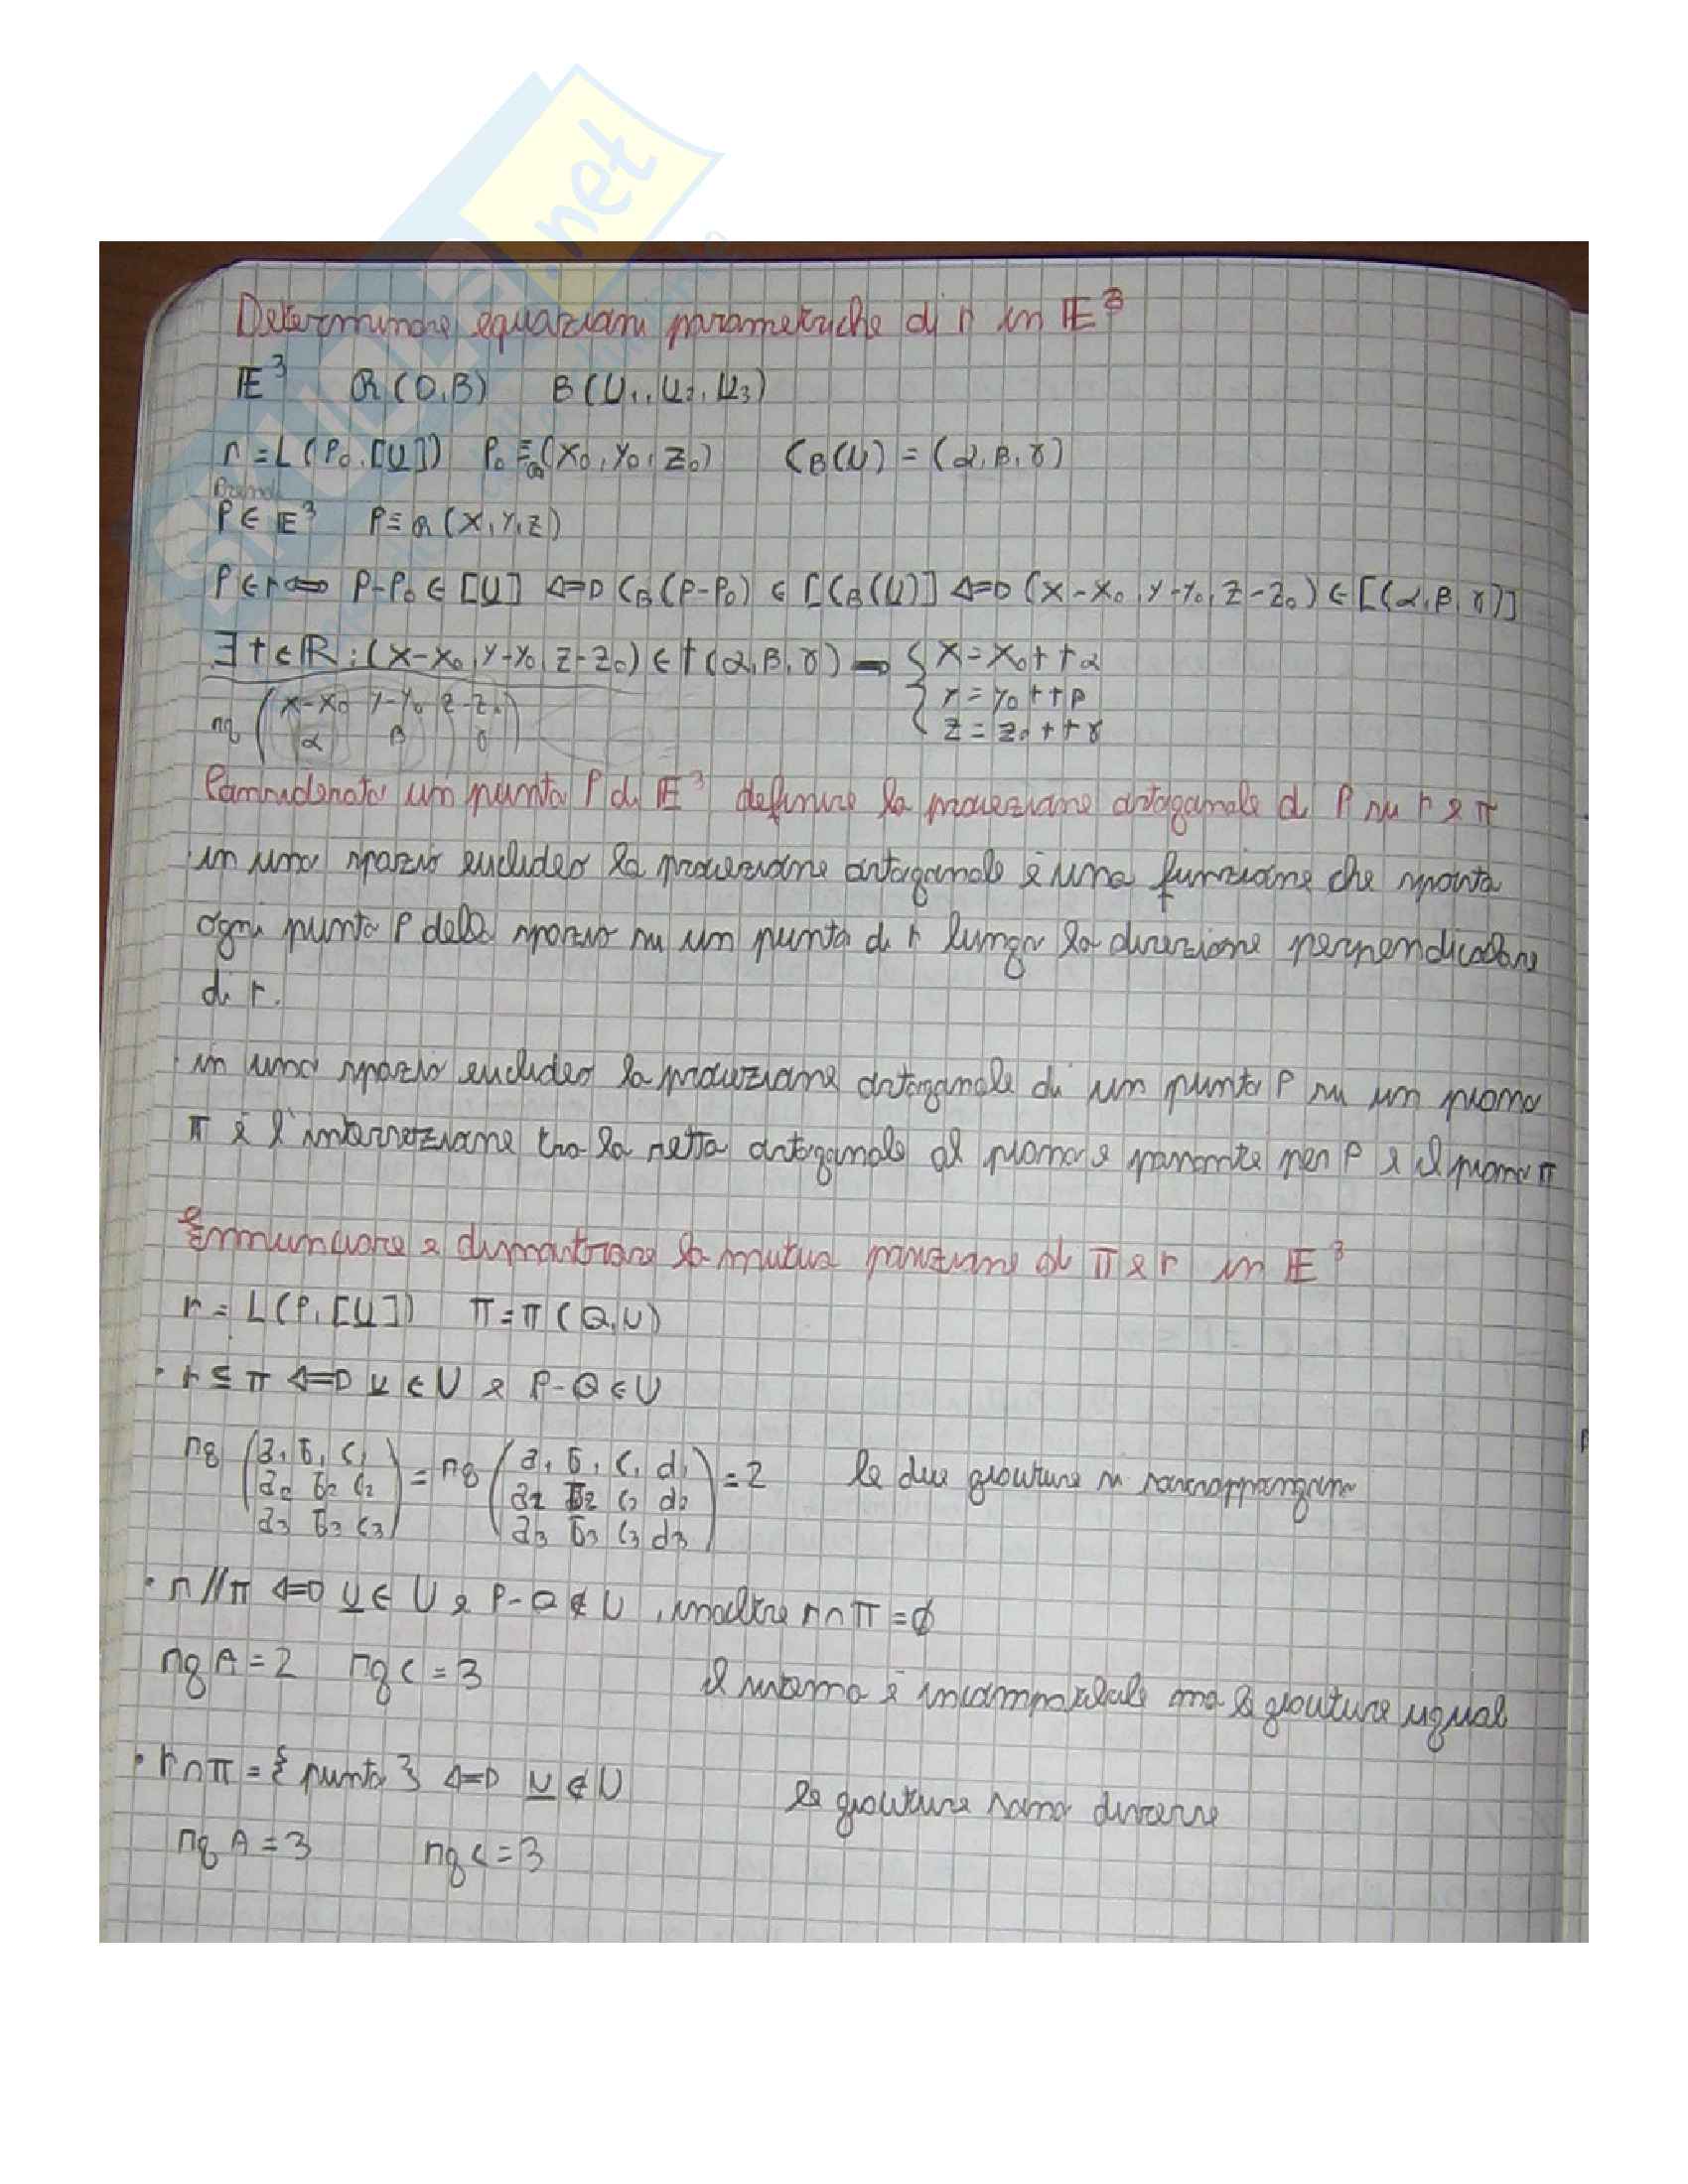 Determinare equazioni parametriche di r in E³
E³ R(O,B) B(u₁,u₂,u₃)
r = L(P₀,[u]) P₀ ≡R (x₀,y₀,z₀) C_B(u) = (α,β,γ)
P ∈ E³ P ≡ R (x,y,z)
P ∈ r ⟺ P-P₀ ∈ [u] ⟺ C_B(P-P₀) ∈ [C_B(u)] ⟺ (x-x₀, y-y₀, z-z₀) ∈ [(α,β,γ)]
∃ t ∈ ℝ : (x-x₀, y-y₀, z-z₀) ∈ t(α,β,γ) → { x = x₀ + tα
y = y₀ + tβ
z = z₀ + tγ
rg ( x-x₀ y-y₀ z-z₀
α β γ )
Considerato un punto P di E³ definire la proiezione ortogonale di P su r e π
· in uno spazio euclideo la proiezione ortogonale è una funzione che sposta
ogni punto P dello spazio su un punto di r lungo la direzione perpendicolare
di r.
· in uno spazio euclideo la proiezione ortogonale di un punto P su un piano
π è l'intersezione tra la retta ortogonale al piano e passante per P e il piano π
Ennunciare e dimostrare la mutua posizione di π e r in E³
r = L(P,[u]) π = π(Q,U)
· r ⊆ π ⟺ u ∈ U e P-Q ∈ U
rg ( a₁ b₁ c₁
a₂ b₂ c₂
a₃ b₃ c₃ ) = rg ( a₁ b₁ c₁ d₁
a₂ b₂ c₂ d₂
a₃ b₃ c₃ d₃ ) = 2 le due giaciture si sovrappongono
· r // π ⟺ u ∈ U e P-Q ∉ U , inoltre r ∩ π = ∅
rg A = 2 rg C = 3 il sistema è incompatibile ma le giaciture uguali
· r ∩ π = { punto } ⟺ u ∉ U le giaciture sono diverse
rg A = 3 rg C = 3
SKUOLA.net